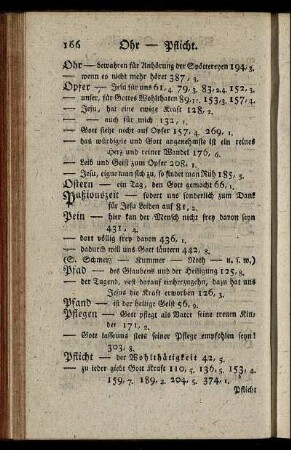 166 Ohr — Pflicht.
Ohr — bewahren für Anhörung der Spöttereyen 194, 3.
— wenn es nicht mehr höret 387, 3.
Opfer — Jesu für uns 61, 4. 79, 3. 83, 2.4. 152, 3.
— unser, für Gottes Wohlthaten 89, 11. 153, 3. 157, 4.
— Jesu, hat eine ewige Kraft 128, 2.
— — auch für mich 132, 1.
— Gott sieht nicht auf Opfer 157, 4. 269, 1.
— das würdigste und Gott angenehmste ist ein reines
Herz und reiner Wandel 176, 6.
— Leib und Geist zum Opfer 208, 1.
— Jesu, eigne man sich zu, so findet man Ruh 185, 5.
Ostern — ein Tag, den Gott gemacht 66, 1.
Paßionszeit — fodert uns sonderlich zum Dank
für Jesu Leiden auf 81, 2.
Pein — hier kan der Mensch nicht frey davon seyn
431, 4.
— dort völlig frey davon 436, 1.
— dadurch will uns Gott läutern 442, 8.
(S. Schmerz — Kummer — Noth — u. s. w.)
Pfad — des Glaubens und der Heiligung 125, 8.
— der Tugend, vest darauf einherzugehn, dazu hat uns
Jesus die Kraft erworben 126, 3.
Pfand — ist der heilige Geist 56, 9.
Pflegen — Gott pflegt als Vater seine treuen Kin-
der 171, 9.
— Gott lasse uns stets seiner Pflege empfohlen seyn!
303, 8.
Pflicht — der Wohlthätigkeit 42, 5.
— zu jeder giebt Gott Kraft 110, 5. 136, 5. 153, 4.
159, 7. 189, 2. 204, 5. 374, 1.
Pflicht